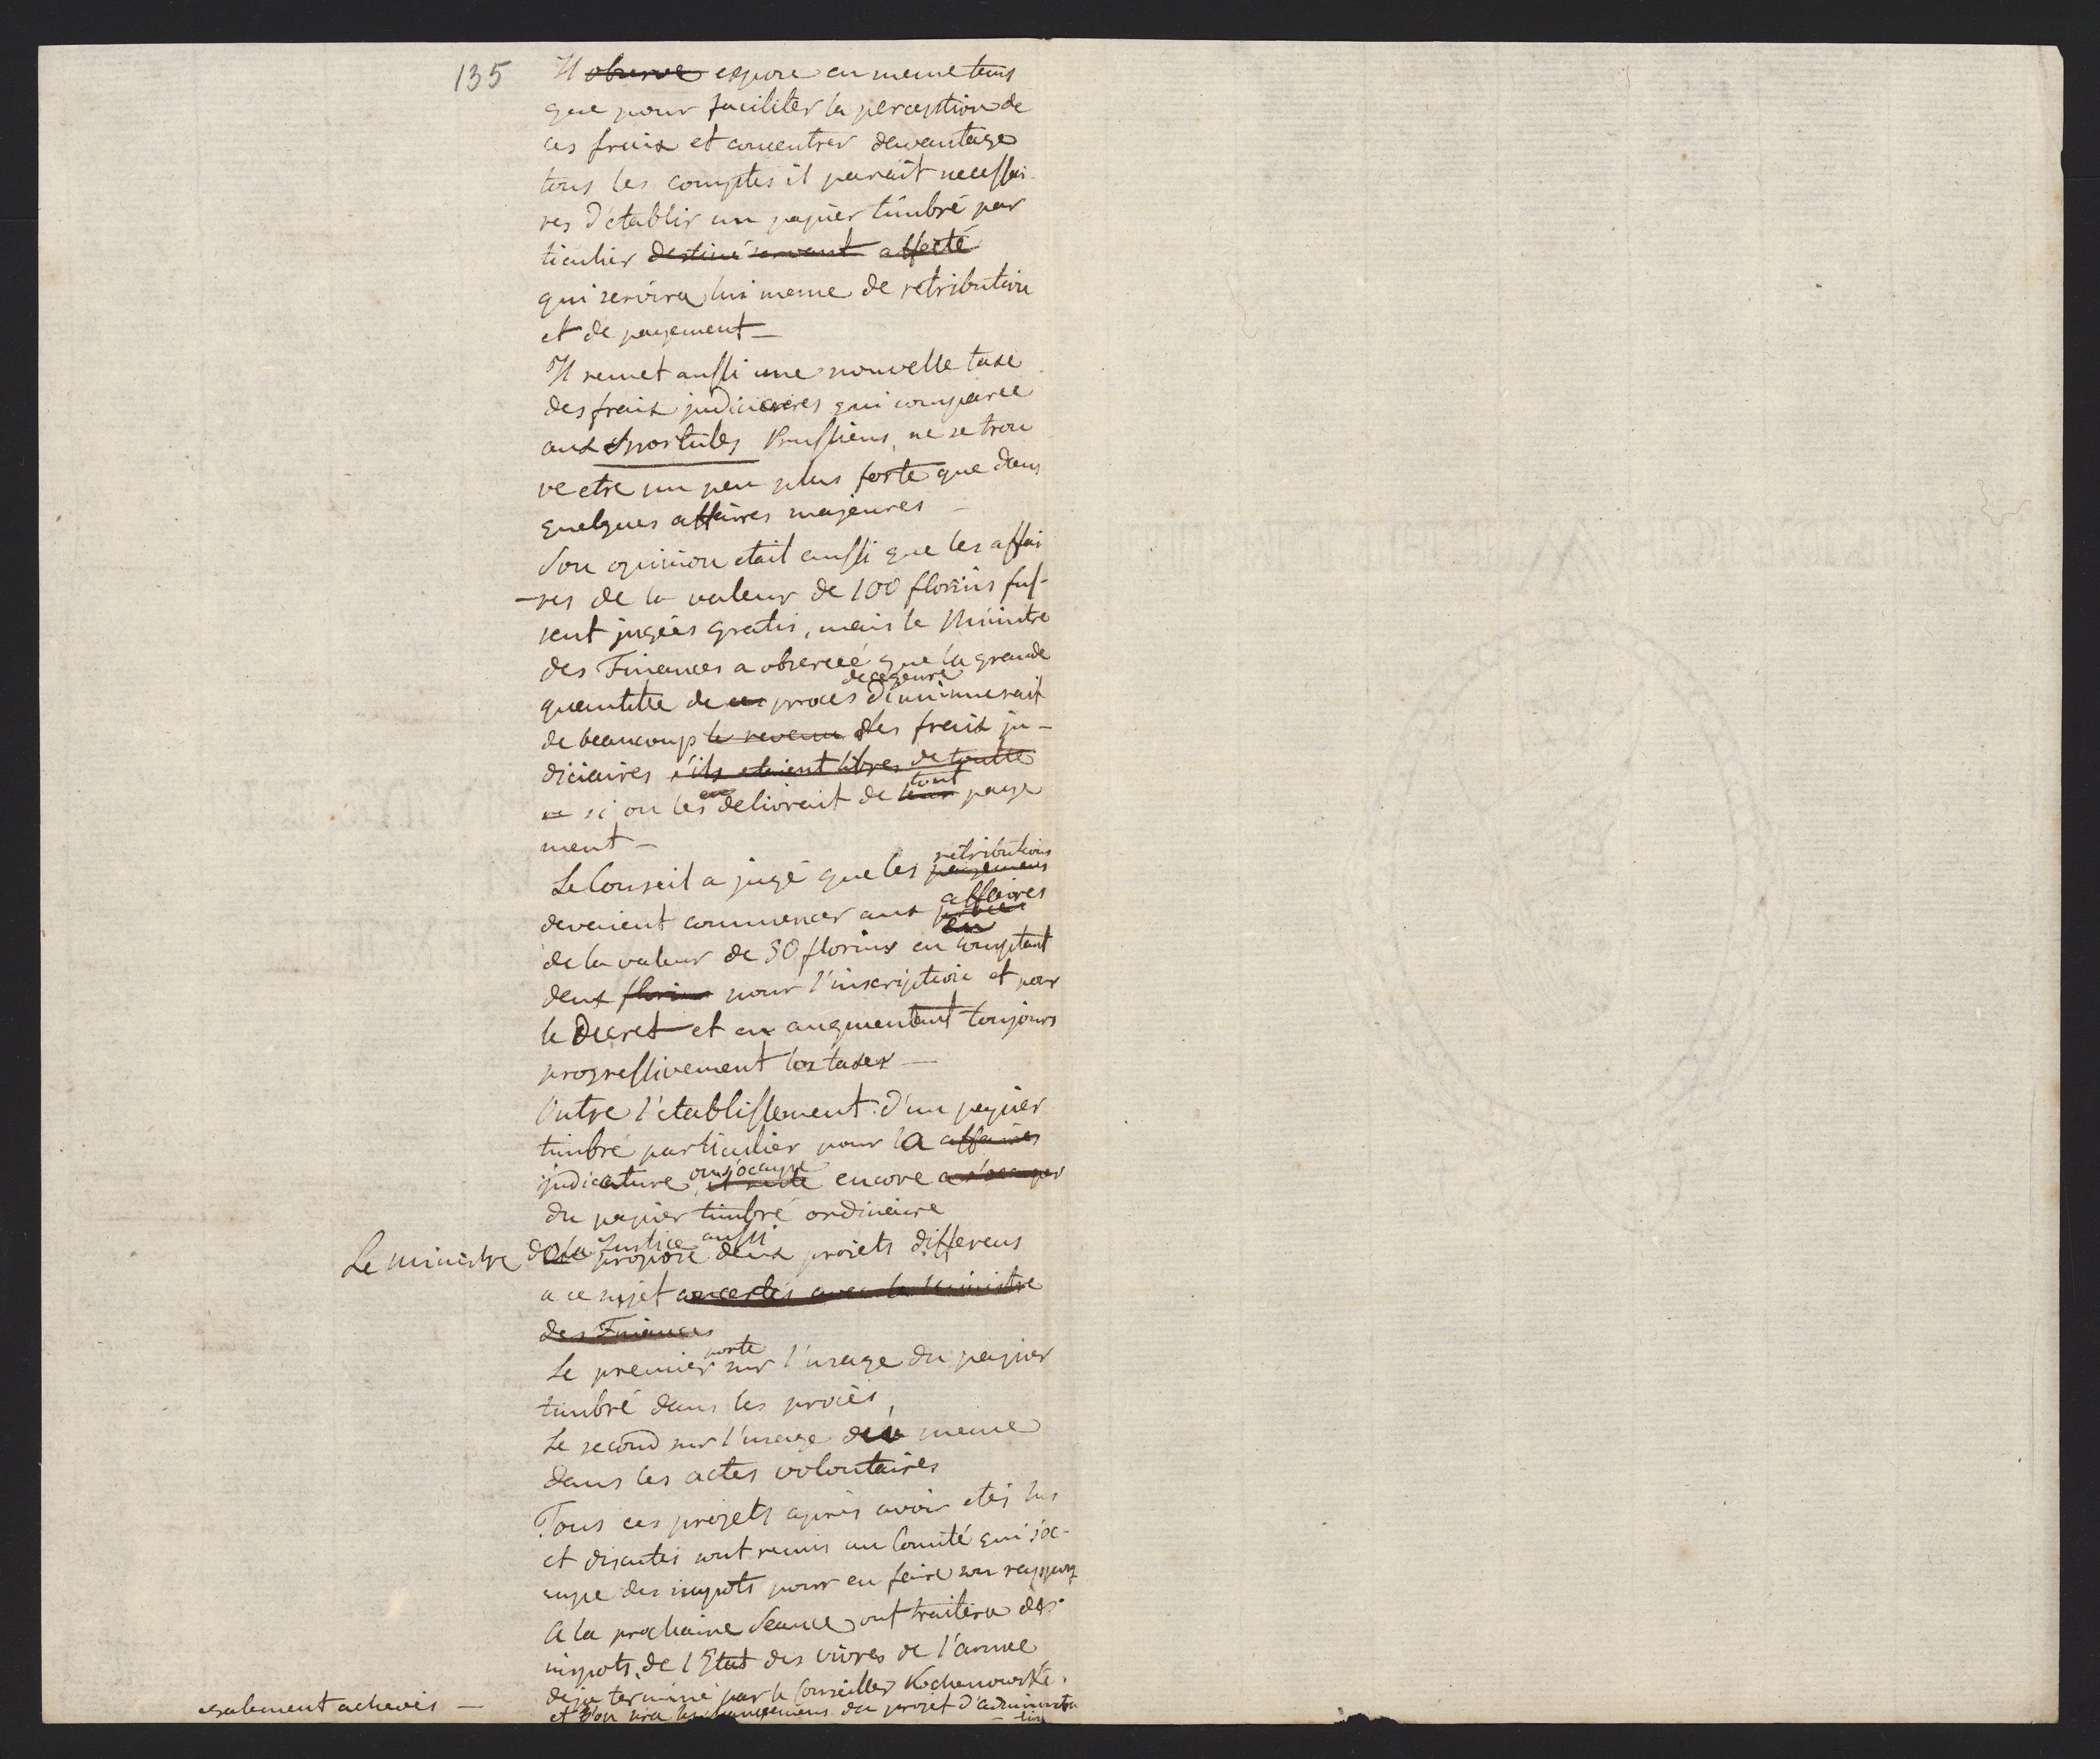 135
Il observe expose en meme tems
que pour faciliter la perception de
ces fraix et concentrer davantage
tous les comptes il parait necessai-
res d'etablir un papier timbré par
ticulier destiné servant affecté
qui servira lui meme de retribution
et de payement —
Il remet aussi une nouvelle taxe
des fraix judiciaires qui comparée
aux Sportules Prussiens, ne se trou
ve etre un peu plus forte que dans
quelques affaires majeures —
Son opinion etait aussi que les affai
-res de la valeur de 100 florins fus-
sent jugées gratis, mais le Ministre
des Finances a observé que la grande
de ce genre
quantité de ces proces diminuerait
de beaucoup le revenu des fraix ju-
diciaires s'ils etaient libres de toutte
si on les en delivrait de leur tout paye
ment —
retributions
Le Conseil a jugé que les payemens
affaires
devaient commencer aux
de la valeur de 50 florins en comptant
deux florins pour l'inscription et pour
le Decret et en augmentant toujours
progressivement les taxes —
Outre l'etablissement d'un papier
timbré particulier pour la affaires
on s'occupe
judicature, il reste encore a s'occuper
du papier timbré ordinaire
Le ministre de la Justice aussi
propose deux projets differens
a ce sujet concertés avec le Ministre
des Finances
porte
Le premier sur l'usage du papier
timbré dans les procès,
Le second sur l'usage du meme
dans les actes volontaires
Tous ces projets après avoir etés lus
et discutés sont remis au Comité qui s'oc-
cupe des impots pour en faire son rapport
A la prochaine Seance ont traitera des
impots, de l'Etat des vivres de l'armée
deja terminé par le Conseiller Kochanowski,
et l'on lira les changemens du projet d'administra
-tion
egalement achevés —